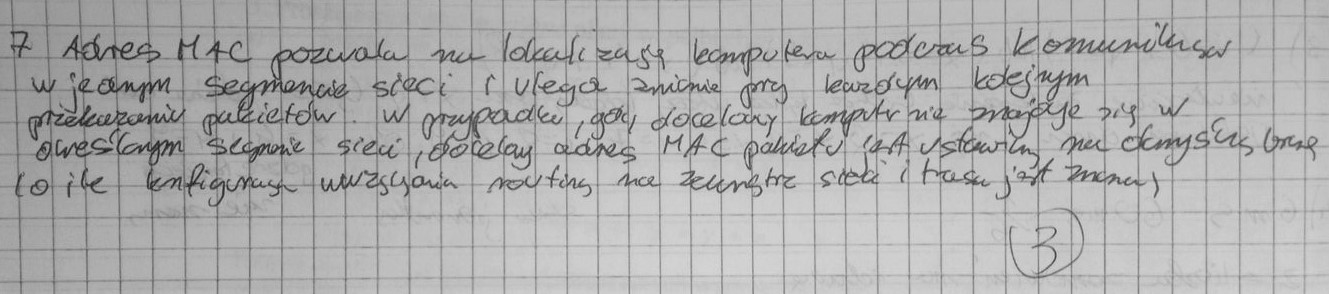 7 Adres MAC pozwala na lokalizację komputera podczas komunikacji
w jednym segmencie sieci i ulega zmianie przy każdym kolejnym
przekazaniu pakietów. W przypadku, gdy docelowy komputer nie znajduje się w
określonym segmencie sieci, docelowy adres MAC pakietu jest ustawiany na domyślną bramę
(o ile konfiguracja routing na zewnątrz sieci i trasa jest znana)
3